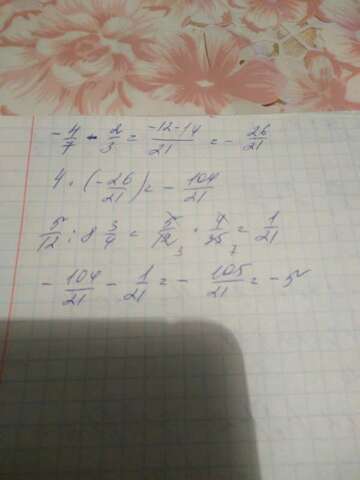 -4/7 - 2/3 = -12-14/21 = - 26/21
4 · (-26/21) = - 104/21
5/12 : 8 3/4 = 5/12 3 · 4/35 7 = 1/21
- 104/21 - 1/21 = - 105/21 = - 5